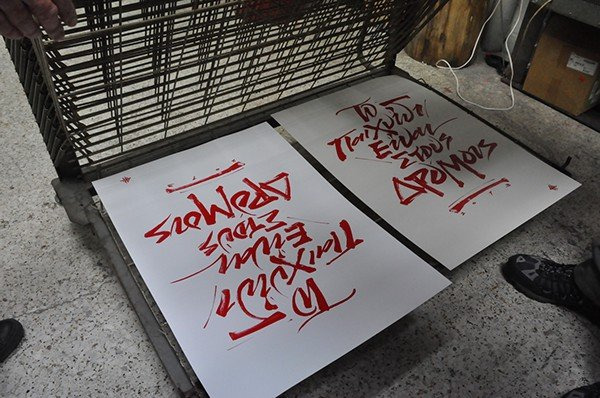 Το
Παιχνίδι
Είναι
Στους
ΔΡόΜΟυς
Το
Παιχνίδι
Είναι
Στους
ΔΡόΜΟυς